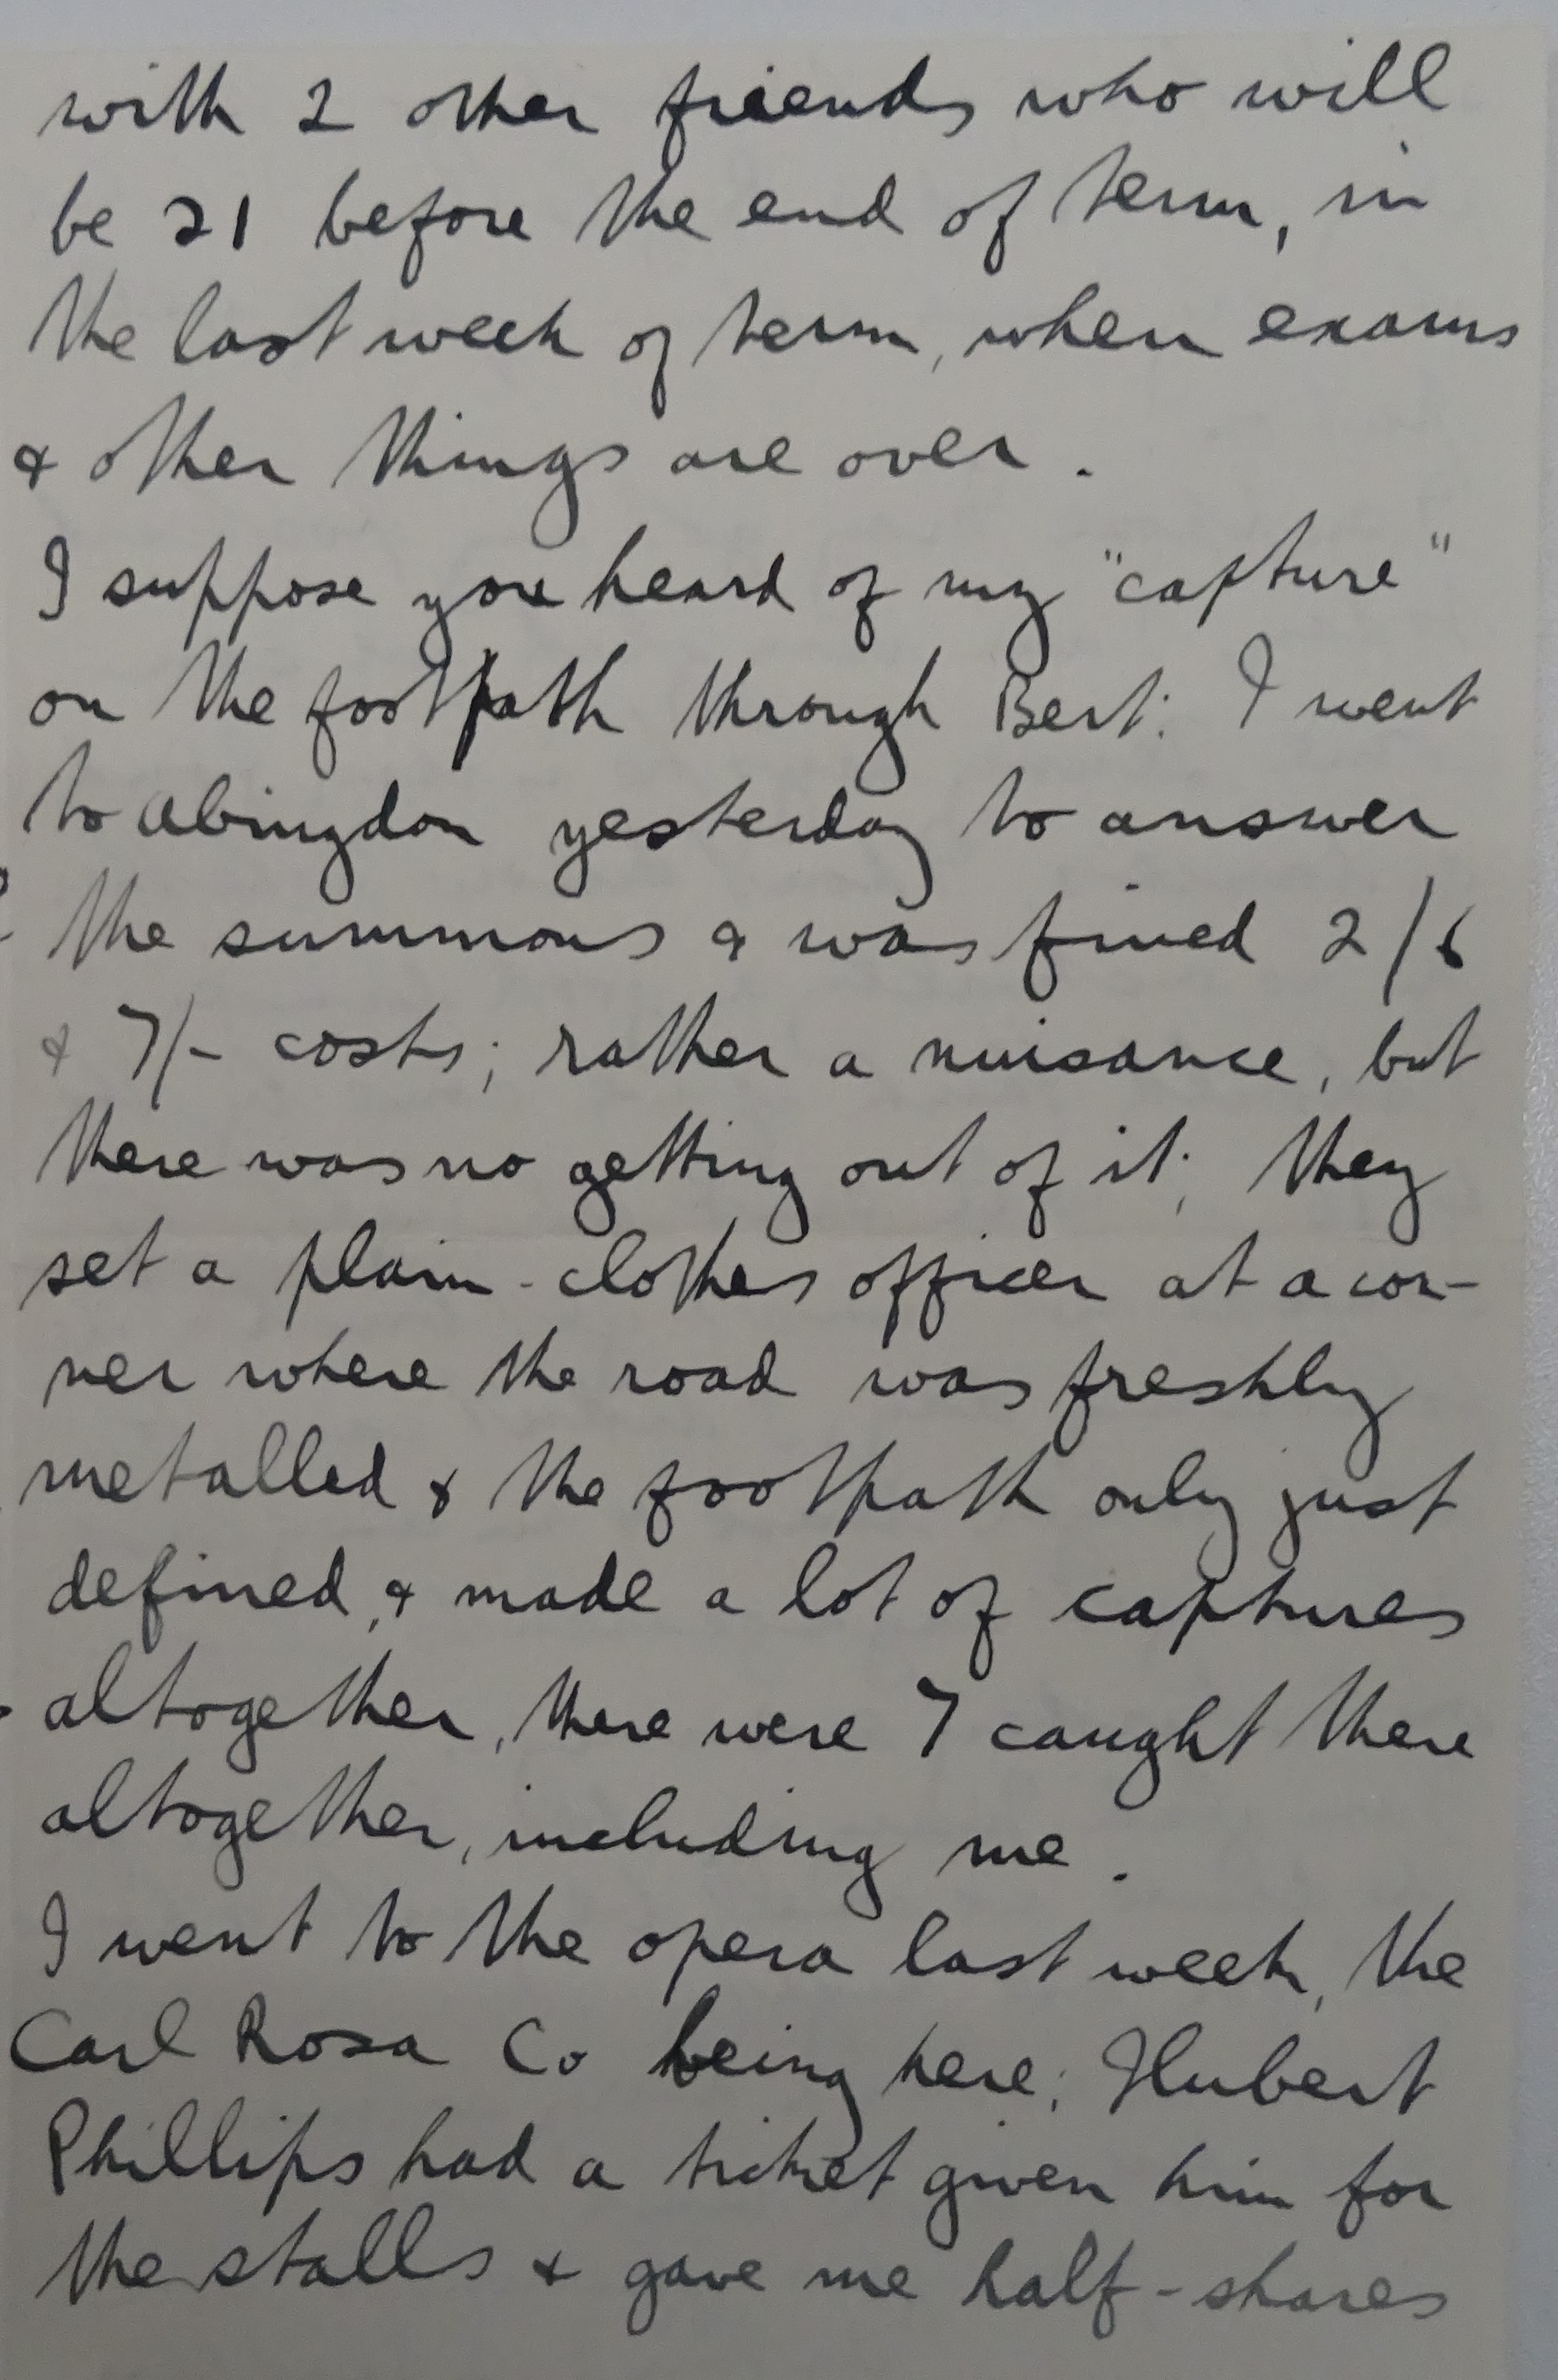 with 2 other friends who will
be 21 before the end of term, in
the last week of term, when exams
& other things are over.
I suppose you heard of my "capture"
on the footpath through Bert: I went
to Abingdon yesterday to answer
the summons & was fined 2/6
& 7/- costs; rather a nuisance, but
there was no getting out of it; they
set a plain-clothes officer at a cor-
ner where the road was freshly
metalled & the footpath only just
defined, & made a lot of captures
altogether, there were 7 caught there
altogether, including me.
I went to the opera last week, the
Carl Rosa Co being here; Hubert
Phillips had a ticket given him for
the stalls & gave me half-shares